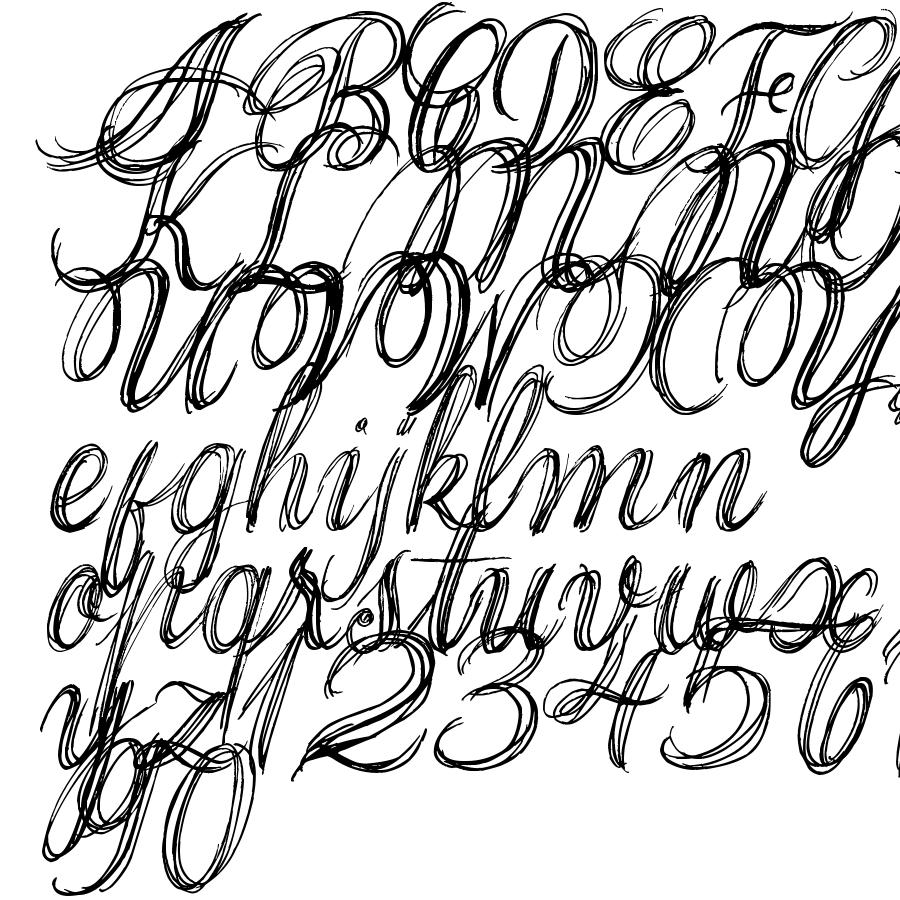 A B C D E F G
K L M N O
U V W X Y
e f g h i j k l m n
o p q r s t u v w x
y z 1 2 3 4 5 6
9 0